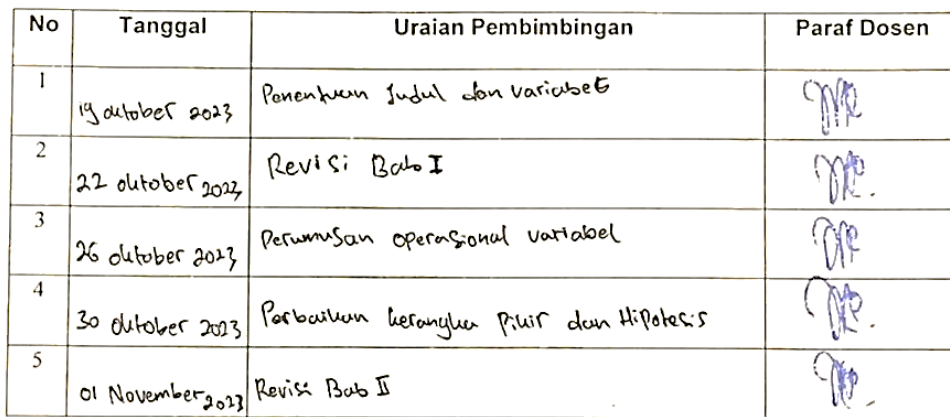 No Tanggal Uraian Pembimbingan Paraf Dosen
1 19 oktober 2023 Penentuan Judul dan variabel
2 22 oktober 2023 Revisi Bab I
3 26 oktober 2023 Perumusan operasional variabel
4 30 oktober 2023 Perbaikan kerangka Pikir dan Hipotesis
5 01 November 2023 Revisi Bab II